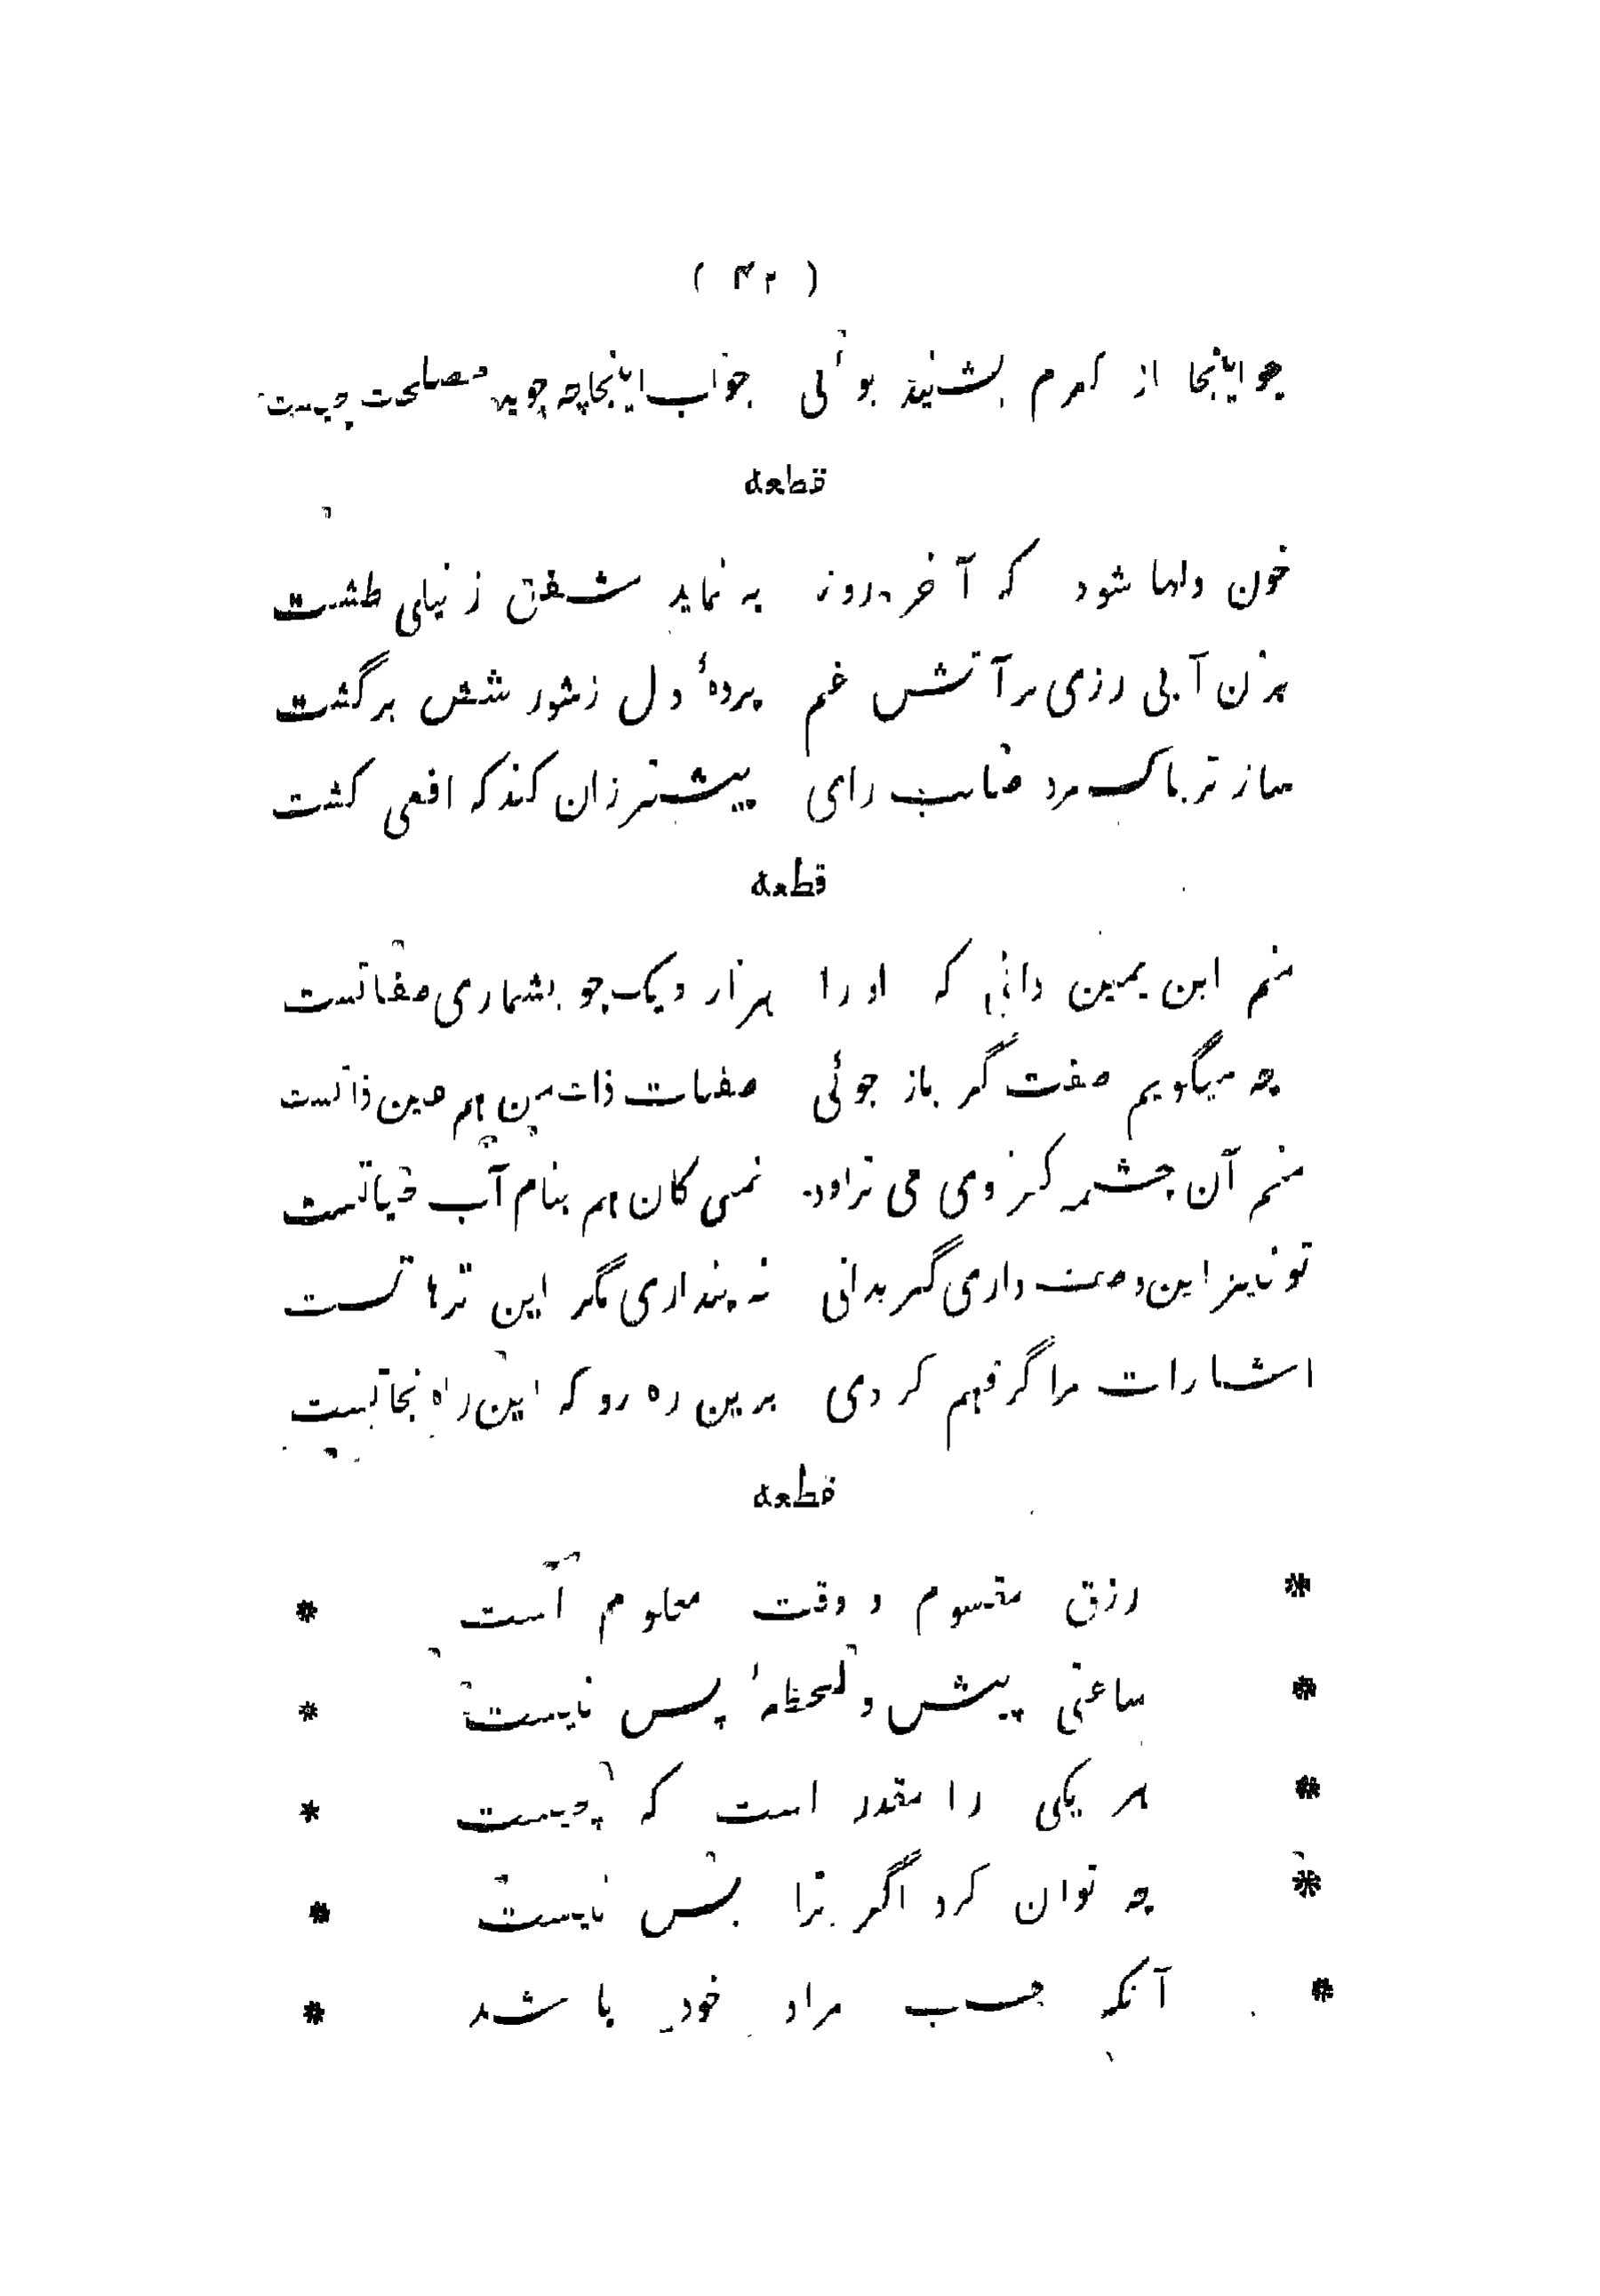 ( ۴۲ )
چو اینجا از کرم بشنید بوئی جواب اینجا چه جوید مصلحت چیست
قطعه
خون دلها شود که آخر روز به نماید شفق ز نیلی طشت
بزن آبی رزی بر آتش غم پردهٔ دل ز شورشش برگشت
ساز تریاک مرد صائب رای پیشتر زان کند که افعی کشت
قطعه
منم ابن یمین دانی که او را هزار و یک چو بشماری صفاتست
چه میگویم صفت گر باز جوئی صفات ذات من هم عین ذاتست
منم آن چشمه کز وی می تراود نمی کان هم بنام آب حیاتست
تو نیز این وصف داری گر بدانی نه پنداری مگر این ترهاتست
اشارات مرا گر فهم کردی برین ره رو که این راه نجاتست
قطعه
* رزق مقسوم و وقت معلوم است *
* ساعتی پیش و لحظهٔ پس نیست *
* هر یکی را مقدر است که چیست *
* چه توان کرد اگر ترا بس نیست *
* آنکه حسب مراد خود باشد *